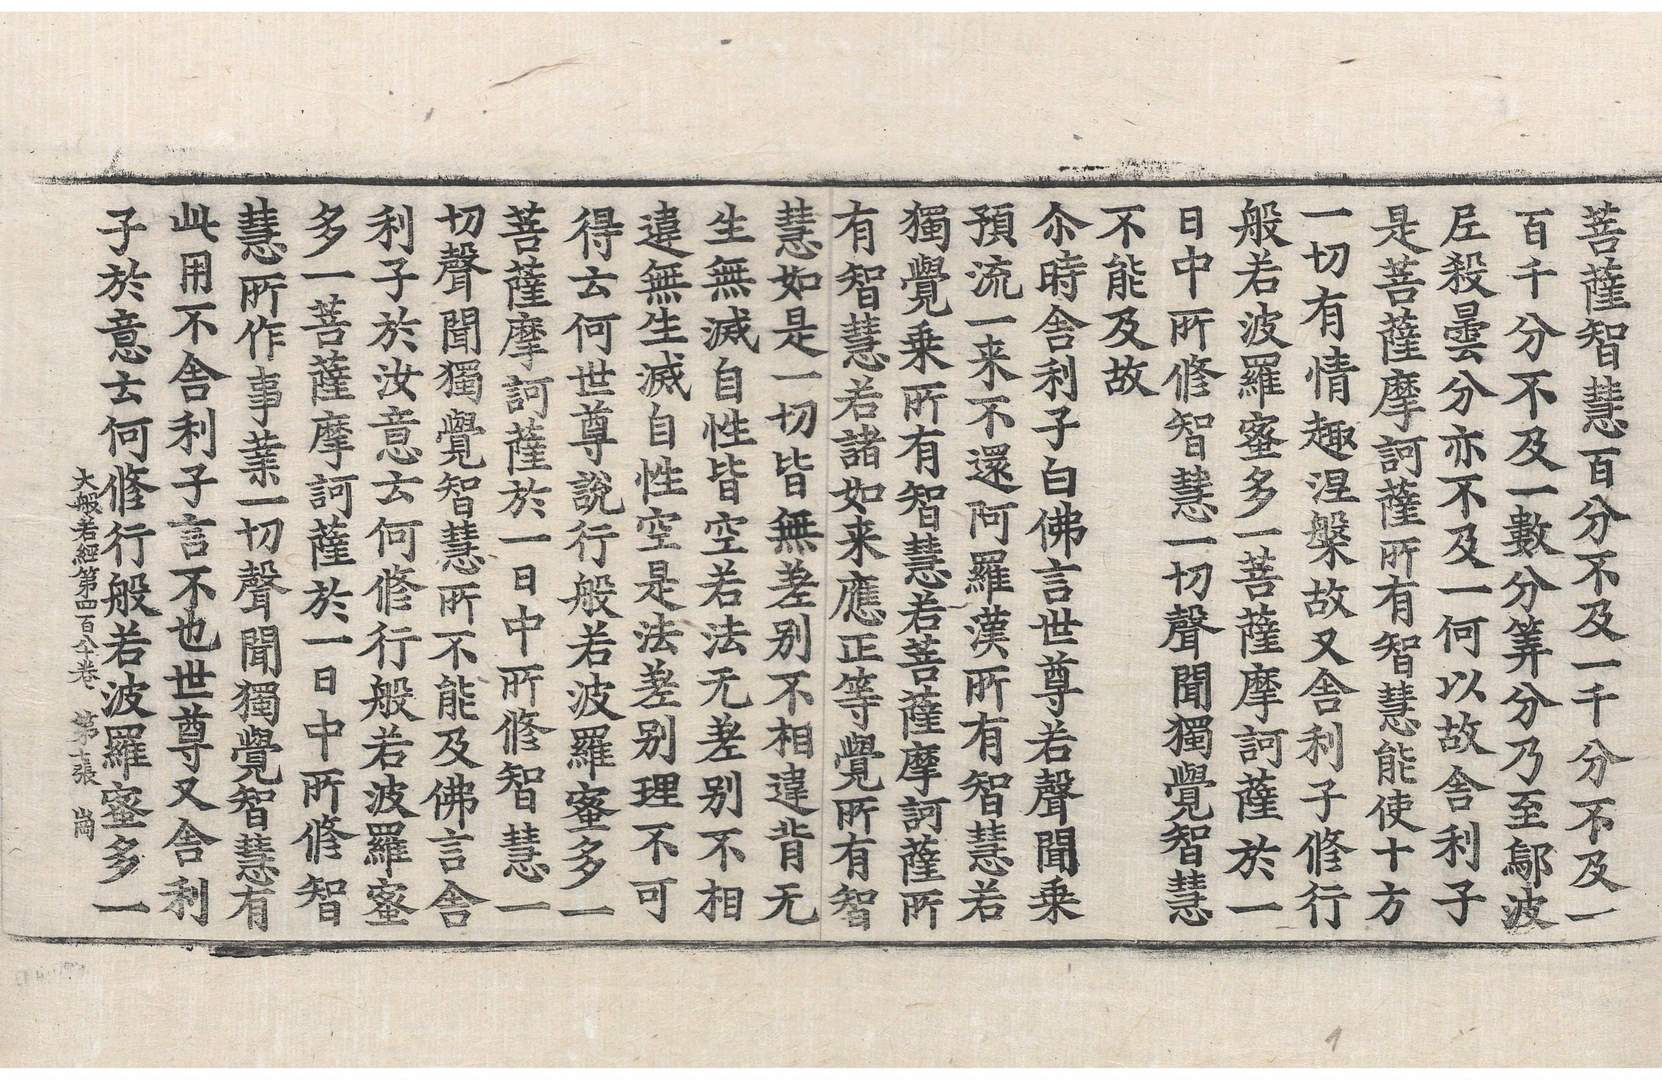 菩薩智慧百分不及一千分不及一
百千分不及一數分筭分乃至鄔波
尼殺曇分亦不及一何以故舍利子
是菩薩摩訶薩所有智慧能使十方
一切有情趣涅槃故又舍利子修行
般若波羅蜜多一菩薩摩訶薩於一
日中所修智慧一切聲聞獨覺智慧
不能及故
尒時舍利子白佛言世尊若聲聞乗
預流一来不還阿羅漢所有智慧若
獨覺乗所有智慧若菩薩摩訶薩所
有智慧若諸如来應正等覺所有智
慧如是一切皆無差别不相違背无
生無滅自性皆空若法无差别不相
違無生滅自性空是法差别理不可
得云何世尊說行般若波羅蜜多一
菩薩摩訶薩於一日中所修智慧一
切聲聞獨覺智慧所不能及佛言舍
利子於汝意云何修行般若波羅蜜
多一菩薩摩訶薩於一日中所修智
慧所作事業一切聲聞獨覺智慧有
此用不舍利子言不也世尊又舍利
子於意云何修行般若波羅蜜多一
大般若經第四百卷 第張 崗